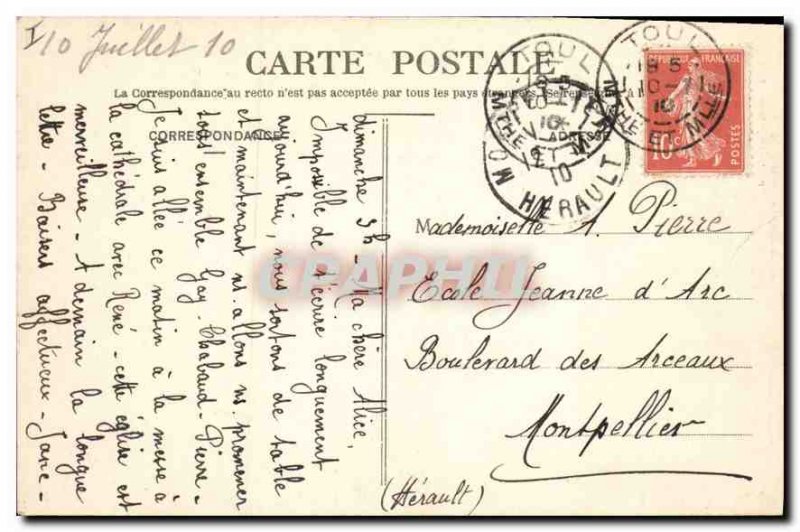 I 10 Juillet 10
CARTE POSTALE
La Correspondance au recto n'est pas acceptée par tous les pays étrangers. (Se
CORRESPONDANCE
ADRESSE
dimanche 3h - Ma chère Alice,
Impossible de t'écrire longuement
aujourd'hui, nous sortons de table
et maintenant ns. allons ns. promener
tous ensemble Gay - Chabaud - Pierre -
Je suis allée ce matin à la messe à
la cathédrale avec René - cette église est
merveilleuse - A demain la longue
lettre - Baisers affectueux - Jane -
TOUL
MTHE ET MLLE
10
HERAULT
TOUL
MTHE ET MLLE
10
RÉPUBLIQUE FRANÇAISE
10c
POSTES
Mademoiselle A. Pierre
Ecole Jeanne d'Arc
Boulevard des Arceaux
Montpellier
(Hérault)
CPAPHIL